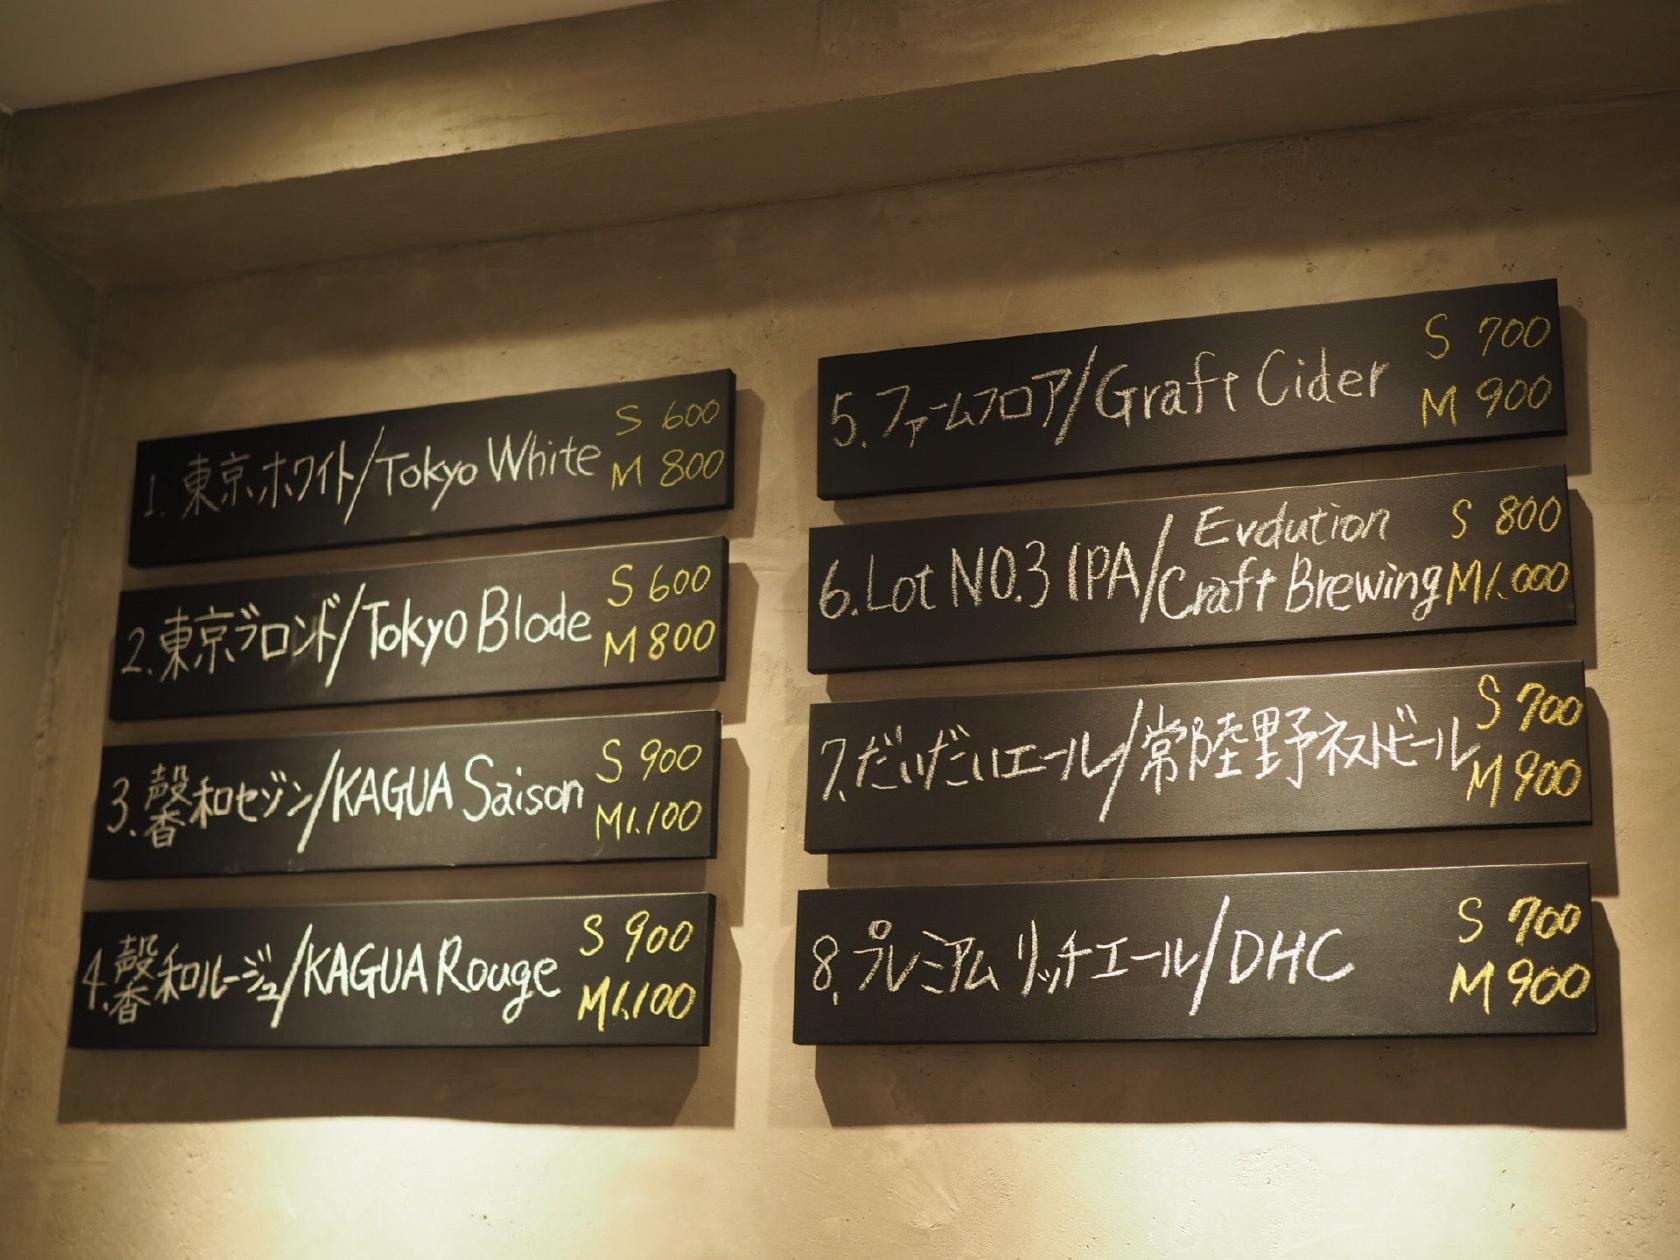 1. 東京ホワイト/Tokyo White S 600
M 800
2. 東京ブロンド/Tokyo Blode S 600
M 800
3. 馨和セゾン/KAGUA Saison S 900
M 1,100
4. 馨和ルージュ/KAGUA Rouge S 900
M 1,100
5. ファームフロア/Graft Cider S 700
M 900
6. Lot NO.3 IPA/Evolution Craft Brewing S 800
M 1,000
7. だいだいエール/常陸野ネストビール S 700
M 900
8. プレミアム リッチエール/DHC S 700
M 900